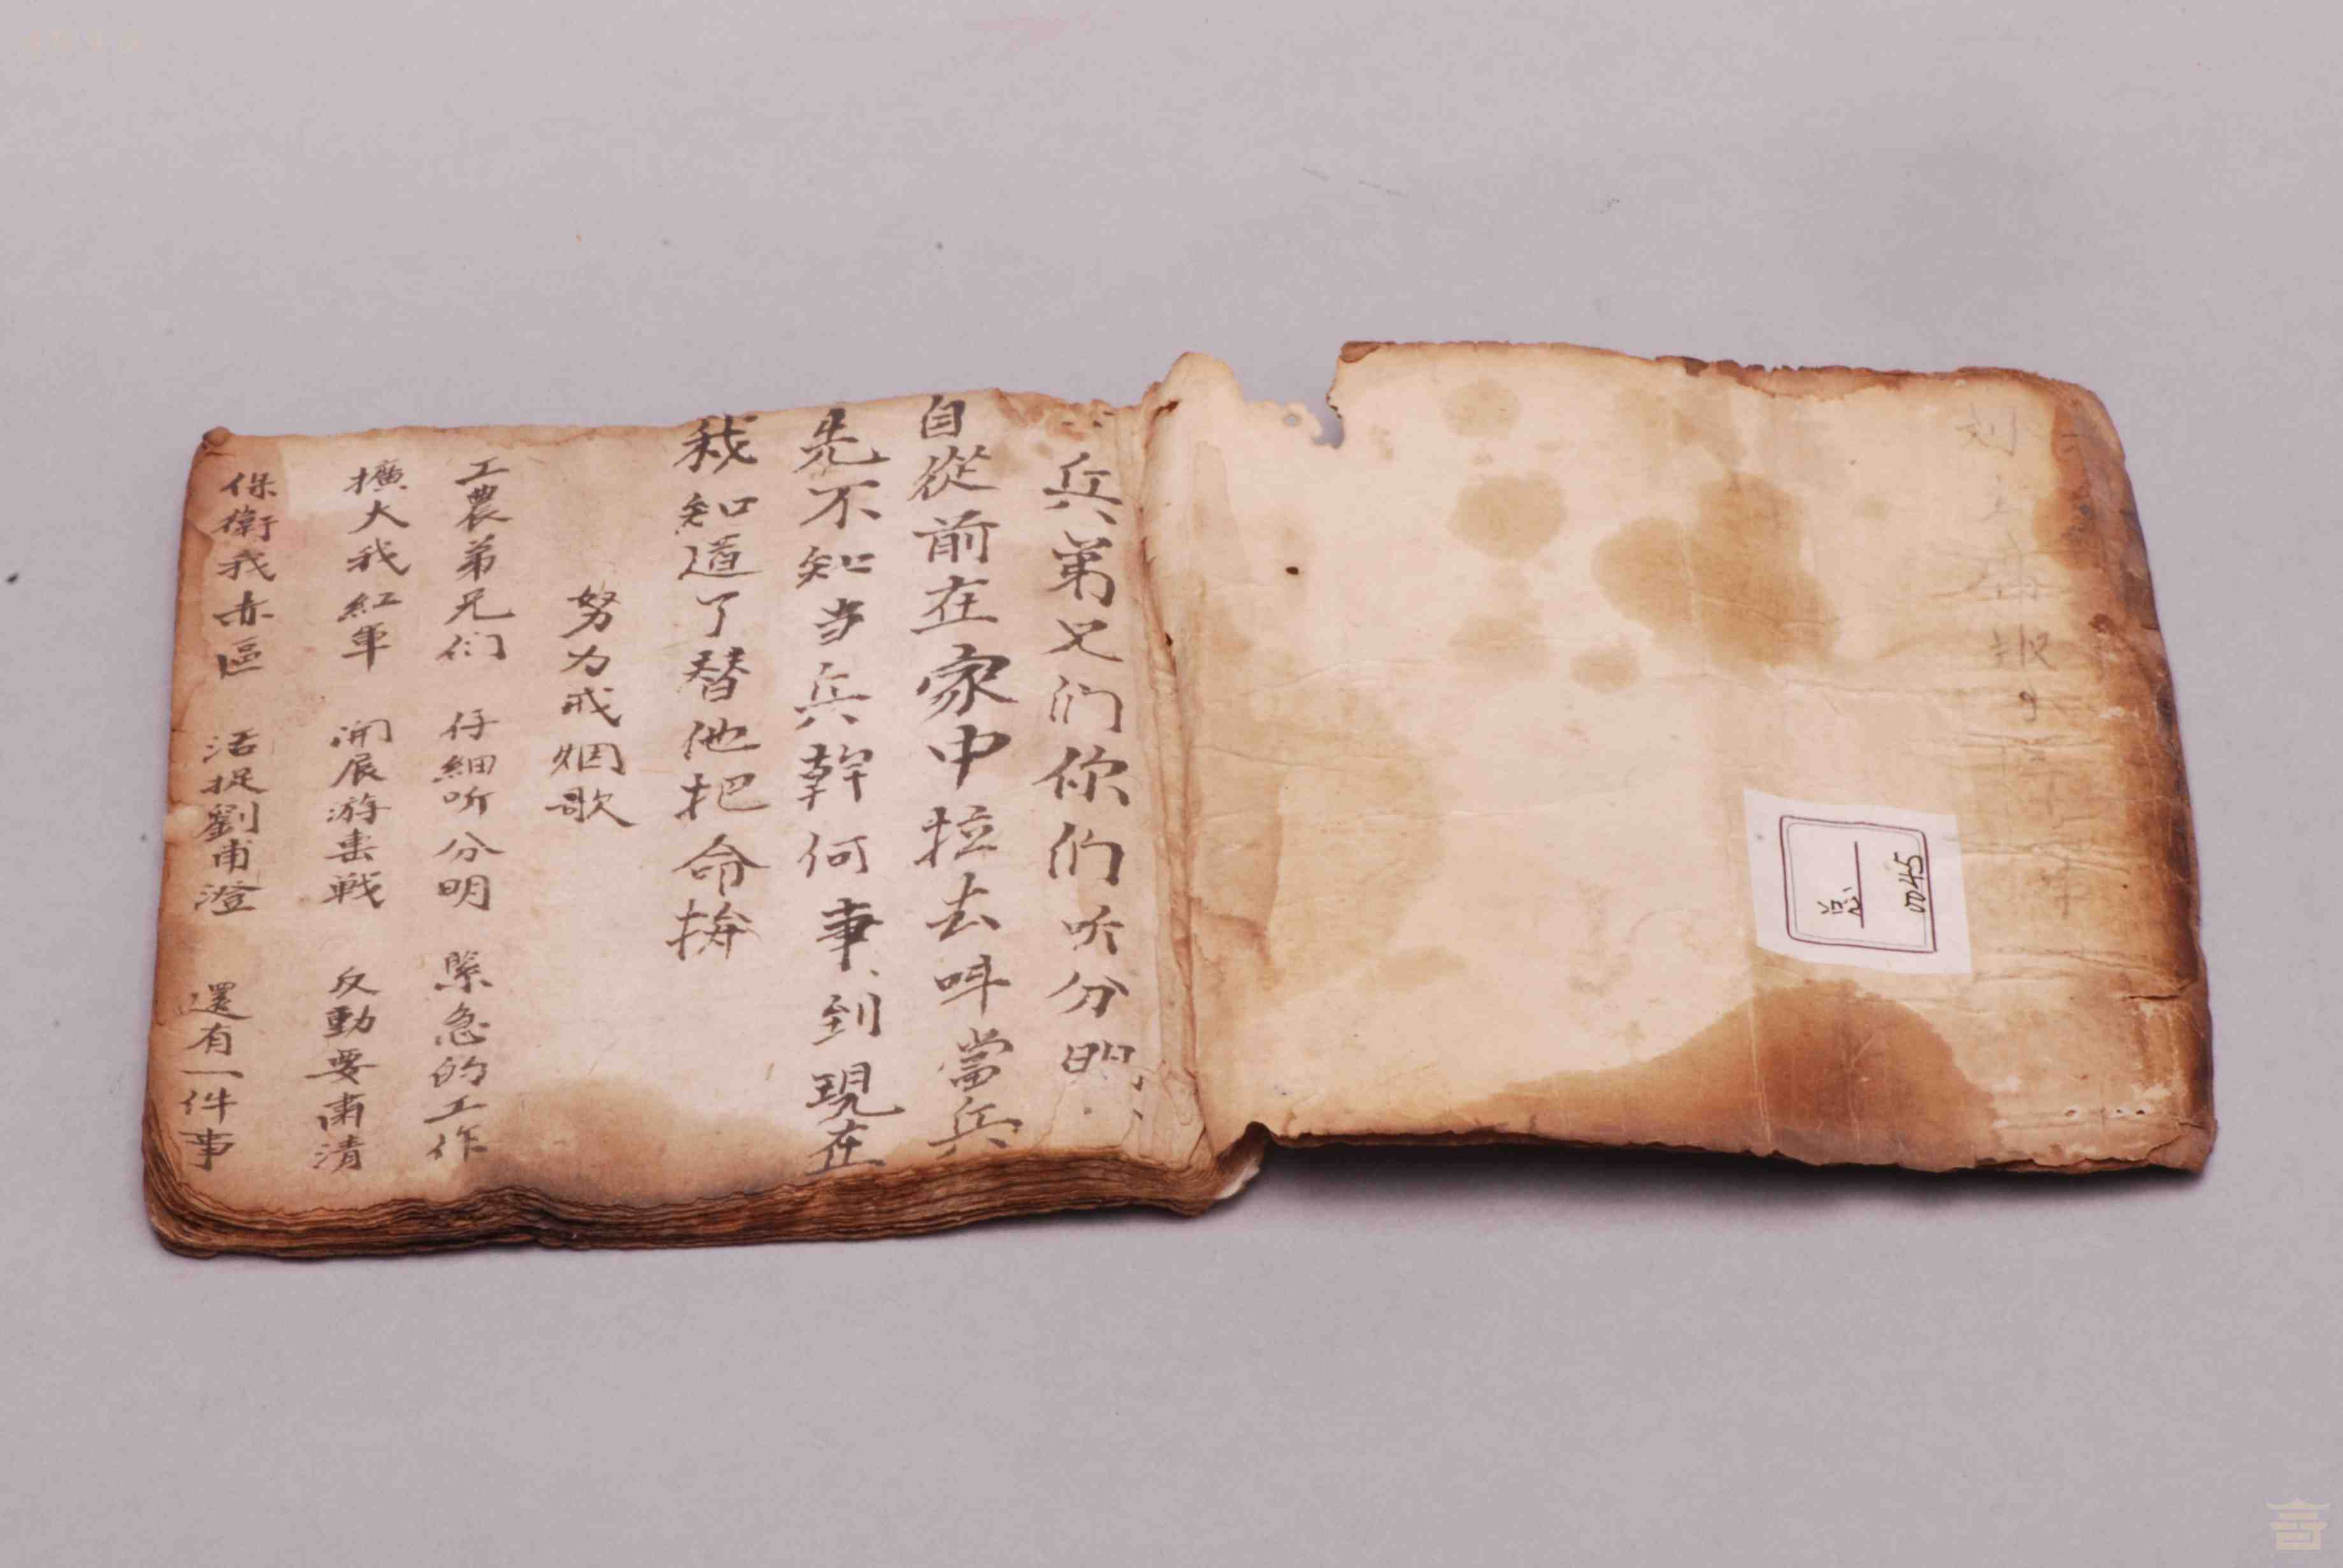 兵弟兄们你们听分明
自從前在家中拉去呌當兵
先不知当兵幹何事、到現在
我知道了替他把命拚
努力戒烟歌
工農弟兄们 仔細听分明 緊急的工作
擴大我紅軍 開展游击戦 反動要肅清
保衛我赤區 活捉劉甫澄 還有一件事
总一
0045